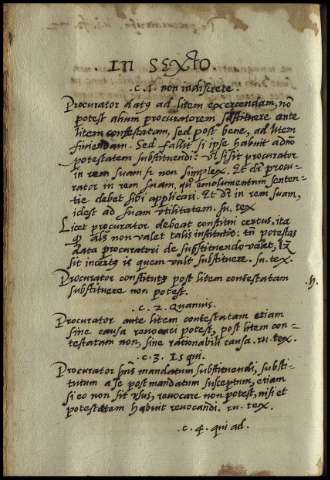 IN SEXTO.
.c. 1. non indiscrete.
Procurator datus ad litem exercendam, nō
potest alium procuratorem substituere ante
litem contestatam, sed post bene, ad litem
finiendam. Sed fallit si ipse habuit
potestatem substituendi: Vl si sit procurator
in rem suam et non simplex. Et di procu-
rator in rem suam, qui emolumentum senten-
tie debet sibi applicari. Et di in rem suam,
idest ad suam utilitatem. su. tex
Licet procurator debeat constitui certus, ita
q alis non valet talis institutio. tn potestas
data procuratori de substituendo valet,
sit incertus is quem vult substituere. su. tex.
Procurator constitutus post litem contestatam
substituere non potest.
.c. 2. Quamuis.
Procurator ante litem contestatam etiam
sine causa revocari potest, post litem con-
testatam non, sine rationabili causa. ru. tex.
.c. 3. Is qui.
Procurator hns mandatum substituendi, substi-
tutum a se post mandatum susceptum, etiam
si eo non sit usus, revocare non potest, nisi et
potestatem habuit revocandi. ru. tex.
.c. 4. qui ad.